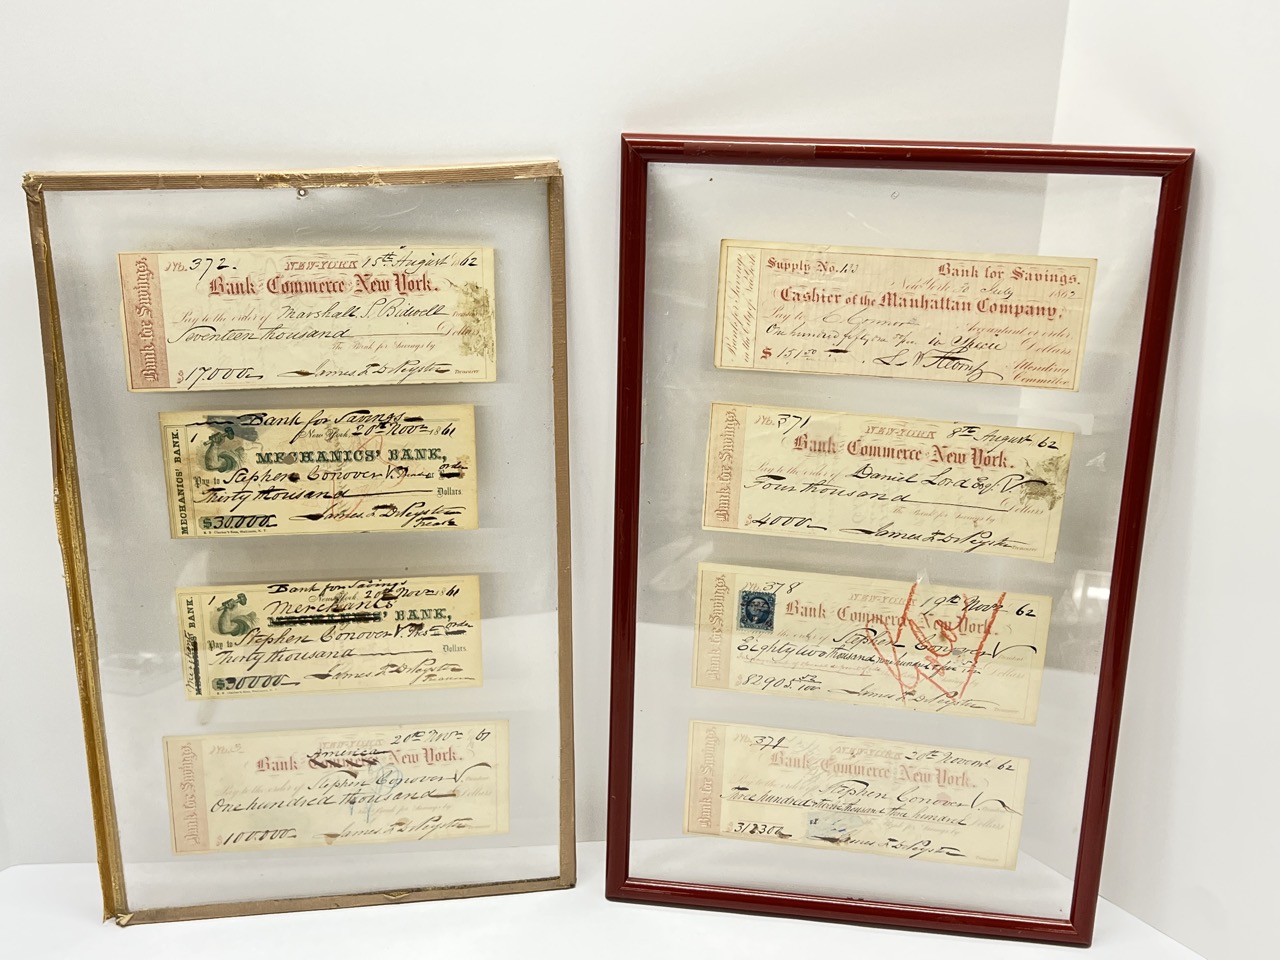 Bank for Savings.
No. 372. NEW-YORK 15th August 1862
Bank of Commerce in New York.
Pay to the order of Marshall S. Bidwell
Seventeen thousand Dollars
The Bank for Savings by
$17.000 James F. DePeyster Treasurer
MECHANICS' BANK.
Bank for Savings
1 New York, 20th Novr 1861
MECHANICS' BANK,
Pay to Stephen Conover V. Order
Thirty thousand Dollars
$30.000 James F. DePeyster
Treasr
Merchants BANK.
Bank for Savings
1 New York, 20th Novr 1861
Merchants BANK,
Pay to Stephen Conover V. Prst Order
Thirty thousand Dollars
$30000 James F. DePeyster
Bank for Savings.
NEW-YORK 20th Novr 61
America
Bank Commerce New York.
Pay to the order of Stephen Conover V.
One hundred thousand Dollars
100.000 James F. DePeyster
Bank for Savings
in the City of New York
Supply No. 133 Bank for Savings.
New York 30 July 1862
Cashier of the Manhattan Company,
Pay to C. Connor Accountant or order
One hundred fifty one in Specie Dollars
$151.50 Attending
Committee
Bank for Savings.
No. 371 NEW-YORK 8th August 62
Bank of Commerce in New York.
Pay to the order of Daniel Lord Esq. V.
Four thousand Dollars
The Bank for Savings by
$4000 James F. DePeyster Treasurer
Bank for Savings.
No. 378 NEW-YORK 19th Novr 62
Bank of Commerce in New York.
Stephen Conover V
Eighty two thousand nine hundred & five Dollars
$82905 James F. DePeyster
Bank for Savings.
No. 379 NEW-YORK 20th Novem 62
Bank of Commerce in New York.
Pay to the order of Stephen Conover V
Three hundred thousand three hundred Dollars
James F. DePeyster